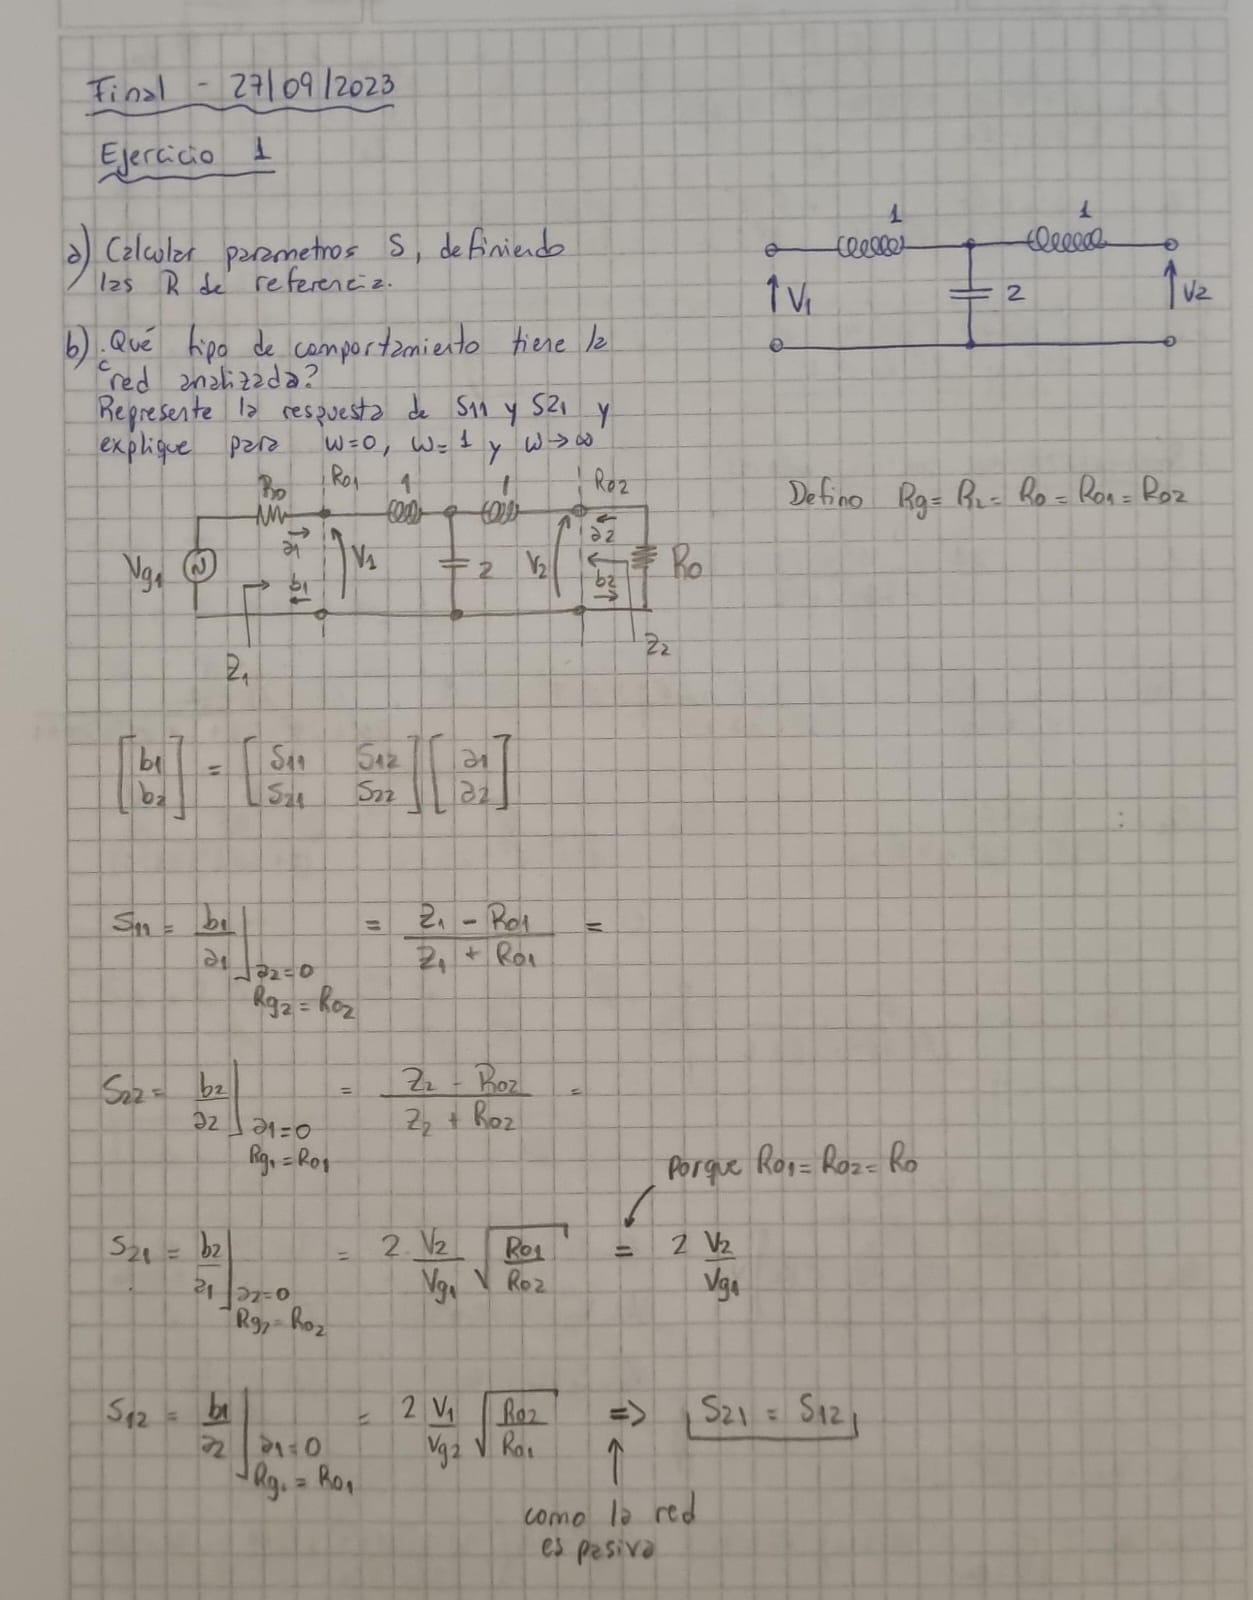 Final - 27/09/2023
Ejercicio 1
a) Calcular parametros S, definiendo
las R de referencia.
b) ¿Qué tipo de comportamiento tiene la
red analizada?
Represente la respuesta de S11 y S21 y
explique para w=0, w=1 y w→∞
1 1
V1 2 V2
Defino Rg = RL = Ro = Ro1 = Ro2
Ro Ro1 1 1 Ro2
Vg1 a1 b1 V1 2 V2 a2 b2 Ro
Z1 Z2
[b1] = [S11 S12] [a1]
[b2] [S21 S22] [a2]
S11 = b1/a1 | a2=0 Rg2=Ro2 = (Z1 - Ro1)/(Z1 + Ro1) =
S22 = b2/a2 | a1=0 Rg1=Ro1 = (Z2 - Ro2)/(Z2 + Ro2) =
porque Ro1 = Ro2 = Ro
S21 = b2/a1 | a2=0 Rg2=Ro2 = 2 V2/Vg1 √(Ro1/Ro2) = 2 V2/Vg1
S12 = b1/a2 | a1=0 Rg1=Ro1 = 2 V1/Vg2 √(Ro2/Ro1) => S21 = S12
como la red
es pasiva